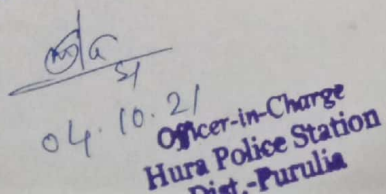 SI
04.10.21
Officer-in-Charge
Hura Police Station
Dist.-Purulia